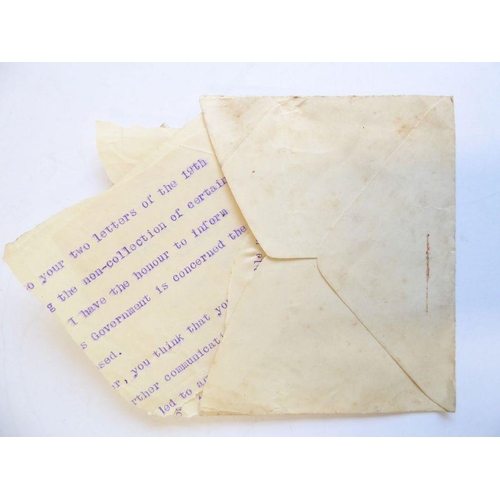 o your two letters of the 19th
g the non-collection of certain
I have the honour to inform
s Government is concerned the
sed.
er, you think that you
rther communicatio
led to ac